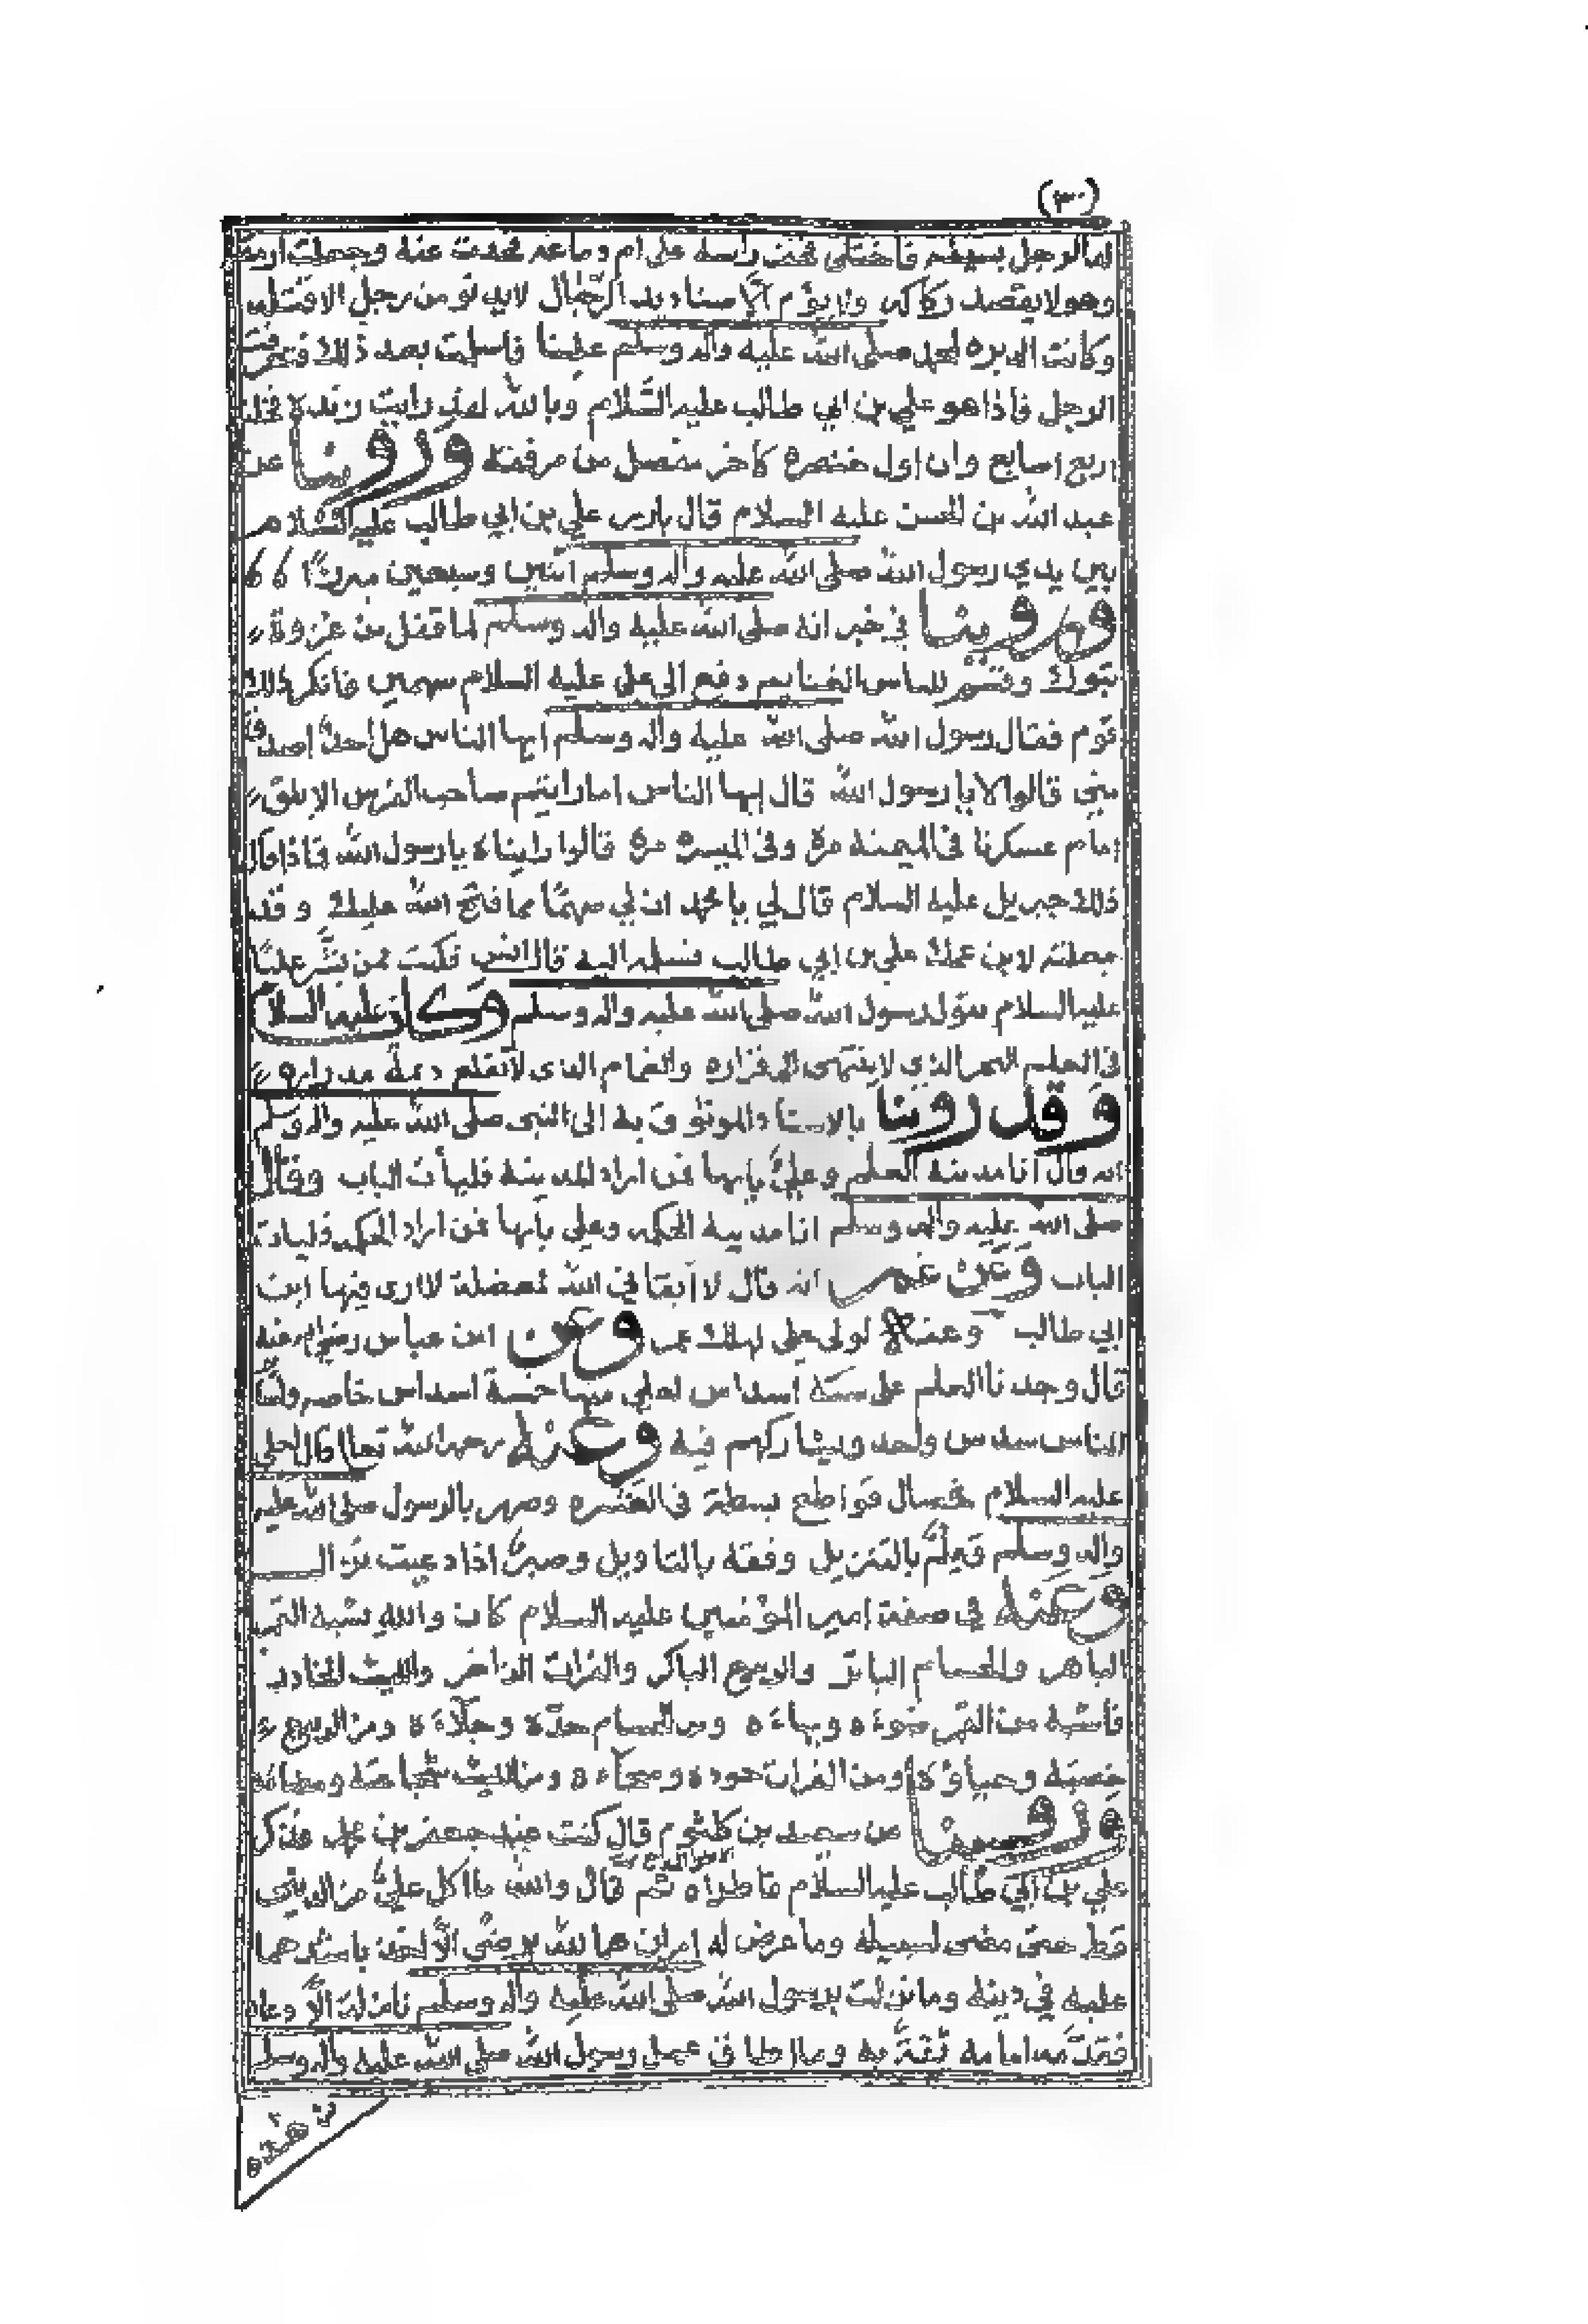 (٣٠)
الرجل فاختلى راسه على ام وماعه فحدت عنه وجعلت
وهو لا يقصد ولا يؤم الا صناديد الرجال لا يدنو من رجل الا قتله
وكانت الدبره لمحمد صلى الله عليه واله وسلم علينا فاسلمت بعد ذلك
الرجل فاذا هو علي بن ابي طالب عليه السلام وبالله لقد رايت زنده
اربع اصابع وان اول خنصره كاخر مفصل من مرفقه وروينا عن
عبد الله بن الحسن عليه السلام قال بارز علي بن ابي طالب عليه السلام
بين يدي رسول الله صلى الله عليه واله وسلم اثنين وسبعين مبارزا
وروينا في خبر انه صلى الله عليه واله وسلم لما قفل من غزوة
تبوك وقسم للناس الغنايم دفع الى علي عليه السلام سهمين فانكر ذلك
قوم فقال رسول الله صلى الله عليه واله وسلم ايها الناس هل احد اصدق
مني قالوا لا يا رسول الله قال ايها الناس اما رايتم صاحب الفرس الابلق
امام عسكرنا في الميمنة مرة وفي الميسرة مرة قالوا رايناه يا رسول الله فماذا قال
ذلك جبريل عليه السلام قال لي يا محمد ان لي سهما مما فتح الله عليك وقد
جعلته لابن عمك علي بن ابي طالب فسلمه اليه قال انس فكنت ممن بشر عليا
عليه السلام بقول رسول الله صلى الله عليه واله وسلم وكان عليه السلام
في العلم البحر الذي لا ينتهى الى قراره والغمام الذي لا تقلع ديمة مدراره
وقد روينا بالاسناد الموثوق به الى النبي صلى الله عليه واله وسلم
انه قال انا مدينة العلم وعلي بابها فمن اراد المدينة فليأت الباب وقال
صلى الله عليه واله وسلم انا مدينة الحكمه وعلي بابها فمن اراد الحكمه فليات
الباب وعن عمر انه قال لا ابقاني الله لمعضلة لا ارى فيها ابن
ابي طالب وعنه لولا علي لهلك عمر وعن ابن عباس رضي الله عنه
قال وجدنا العلم على ستة اسداس لعلي منها خمسة اسداس خاصه ولسائر
الناس سدس واحد ويشاركهم فيه وعنه رحمه الله تعالى كان لعلي
عليه السلام خصال قواطع بسطة في العشيره وصهر بالرسول صلى الله عليه
واله وسلم وعلم بالتنزيل وفقه بالتاويل وصبر اذا دعيت نزال
وعنه في صفة امير المؤمنين عليه السلام كان والله يشبه القمر
الباهر والحسام الباتر والربيع الباكر والفرات الزاخر والليث الخادر
فاشبه من القمر ضوءه وبهاءه ومن الحسام حده وجلاءه ومن الربيع
خصبه وحياؤه ومن الفرات جوده وسخاءه ومن الليث شجاعته ومضاءه
وروينا عن سعيد بن كلثوم قال كنت عند جعفر بن محمد فذكر
علي بن ابي طالب عليه السلام فاطراه ثم قال والله ما اكل علي من الدنيا
قط حتى مضى لسبيله وما عرض له امران هما لله رضى الا اخذ باشدهما
عليه في دينه وما نزلت برسول الله صلى الله عليه واله وسلم نازلة الا دعاه
فقدمه امامه ثقة به وما اطاق عمل رسول الله صلى الله عليه واله وسلم
من هذه